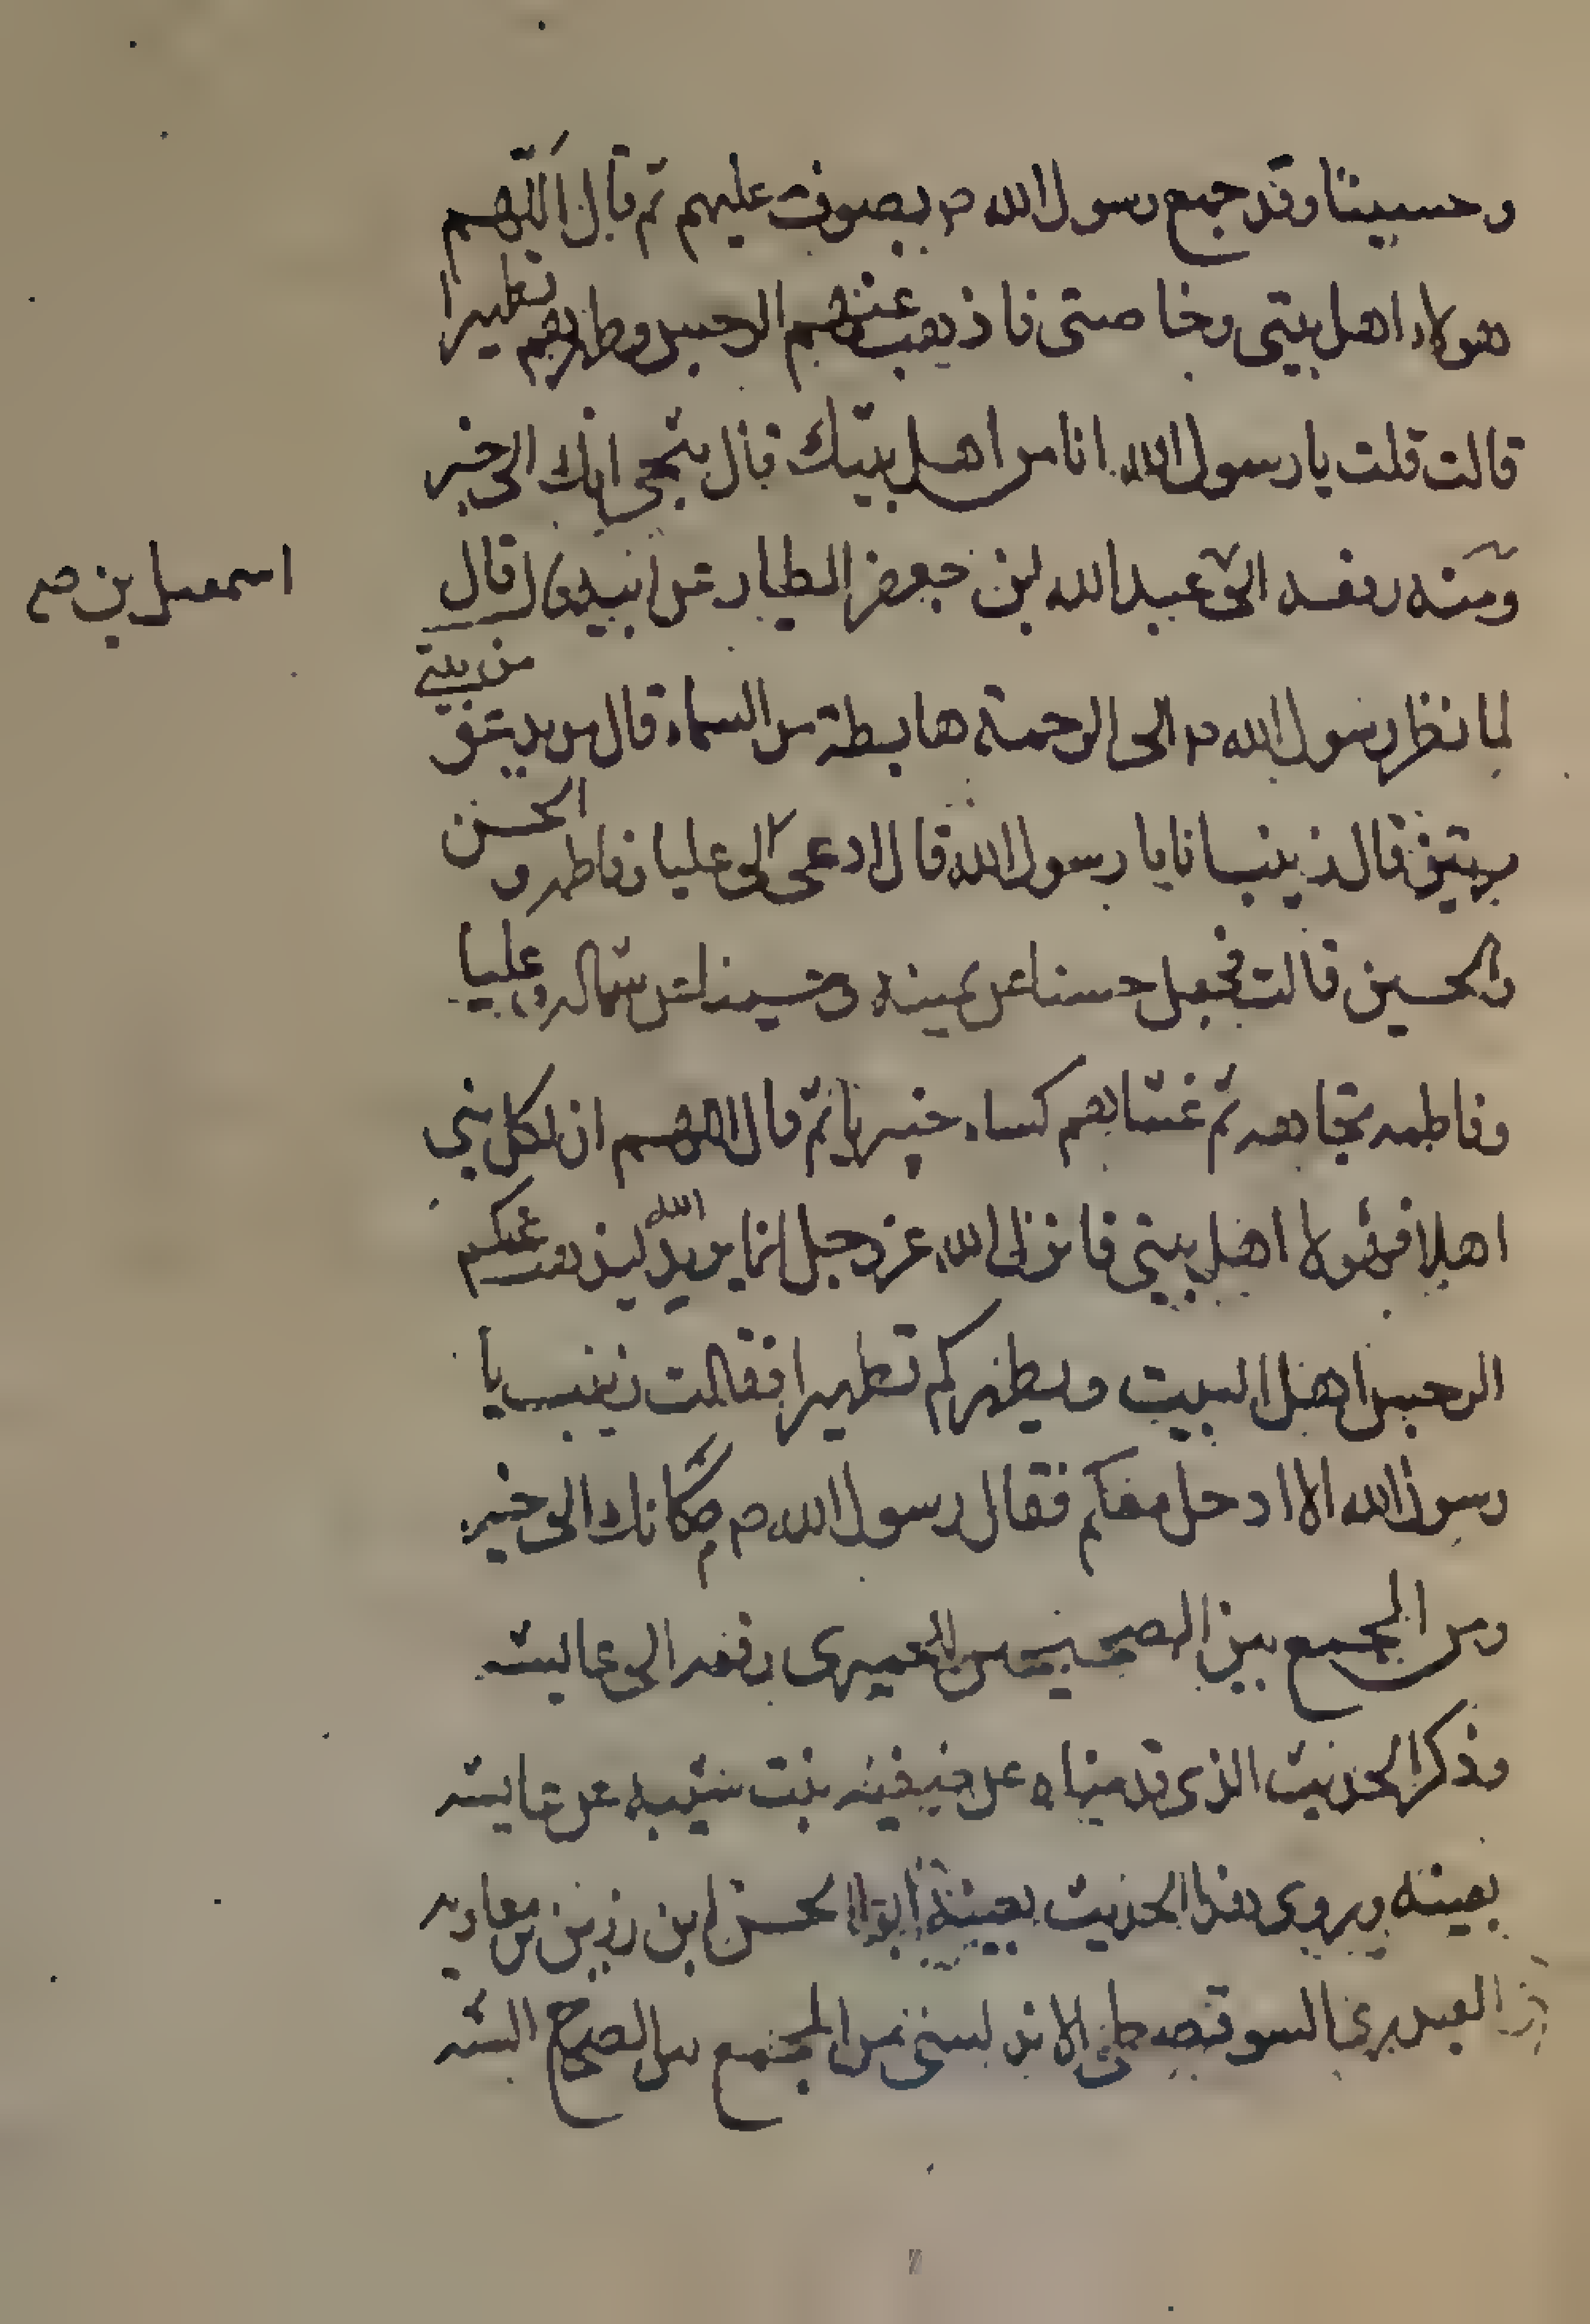 وحسينا وقد جمع رسول الله ص بصوت عليهم ثم قال اللهم
هولاء اهل بيتى وخاصتى فاذهب عنهم الرجس وطهرهم تطهيرا
قالت قلت يا رسول الله انا من اهل بيتك قال تنحى انك الى خير
ومنه رفعه الى عبد الله بن جعفر الطيار عن ابيه قال
اسمعيل بن صح
لما نظر رسول الله ص الى الرحمة هابطة من السماء قال من يدعو
من بيتي
مرتين قال زينب انا يا رسول الله قال ادعى لى عليا وفاطمه و الحسن
والحسين قالت فجعل حسنا عن يمينه وحسينا عن شماله وعليا
وفاطمه تجاهه ثم غشاهم كساء خيبريا ثم قال اللهم ان لكل نبى
اهلا فهولا اهل بيتى فانزل الله عز وجل انما يريد الله ليذهب عنكم
الرجس اهل البيت ويطهركم تطهيرا فقالت زينب يا
رسول الله الا ادخل معكم فقال رسول الله ص مكانك الى خير
ومن الجمع بين الصحيحين للحميدى رفعه الى عايشه
وذكر الحديث الذى قدمناه عن صفيه بنت شيبه عن عايشه
بعينه وروى هذا الحديث بعينه ابو الحسن ابن رزين بن معاويه
العبدرى السرقسطى الاندلسى من الجمع بين الصحاح السته